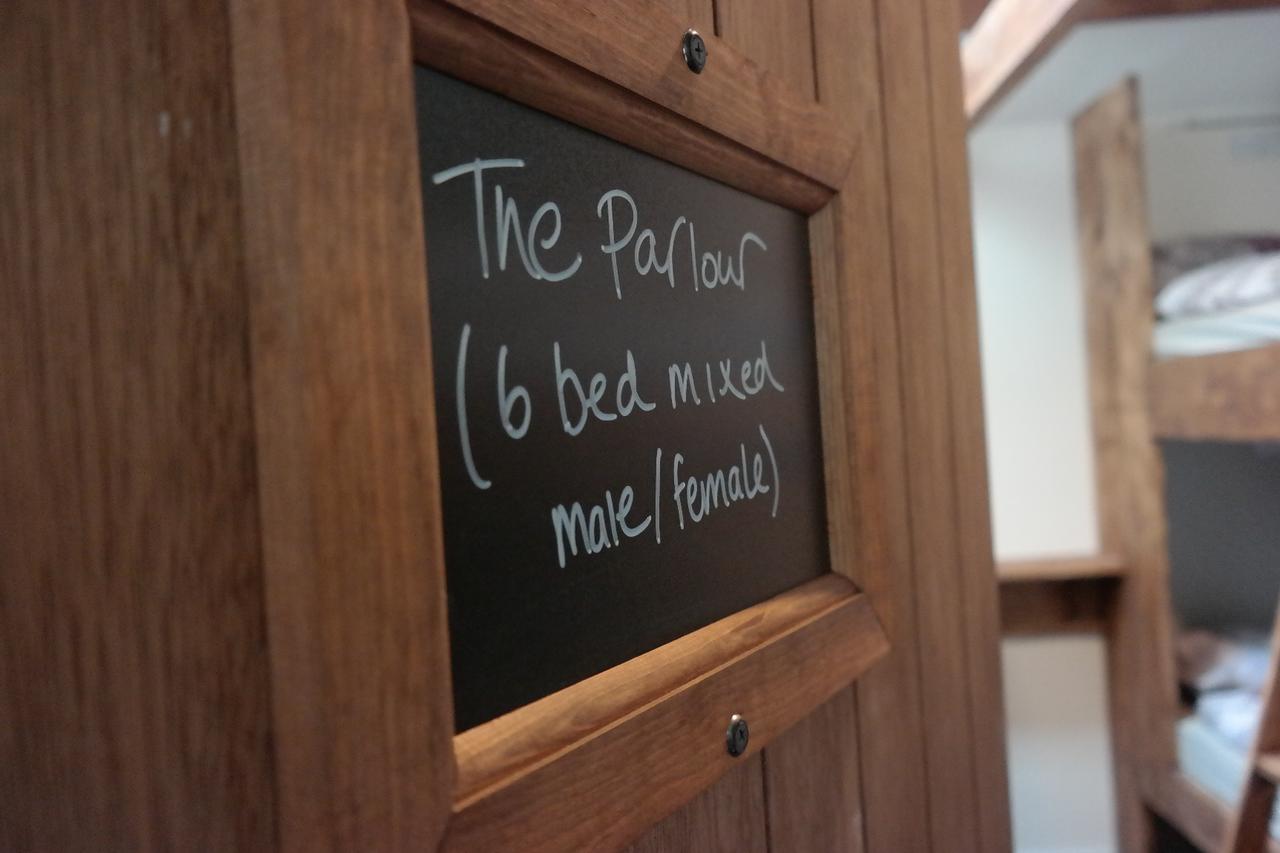 The Parlour
(6 bed mixed
male/female)